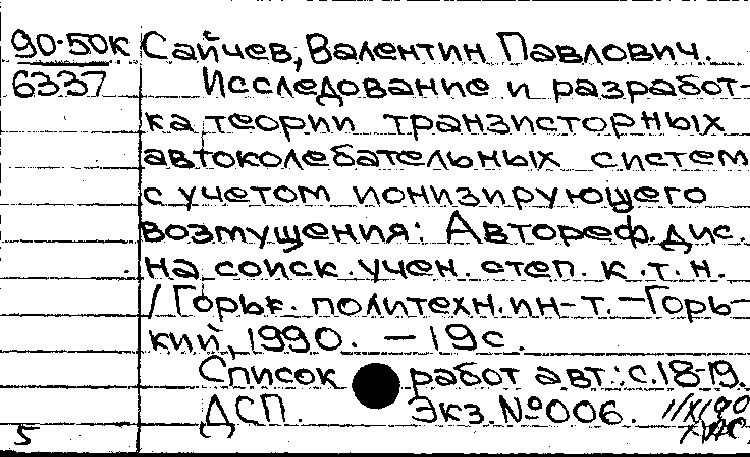 90-50к Сайчев, Валентин Павлович.
6337 Исследование и разработ-
ка теории транзисторных
автоколебательных систем
с учетом ионизирующего
возмущения: Автореф. дис.
на соиск. учен. степ. к.т.н.
/ Горьк. политехн. ин-т. — Горь-
кий, 1990. — 19 с.
Список работ авт.: с. 18-19.
ДСП. Экз. № 006.
5